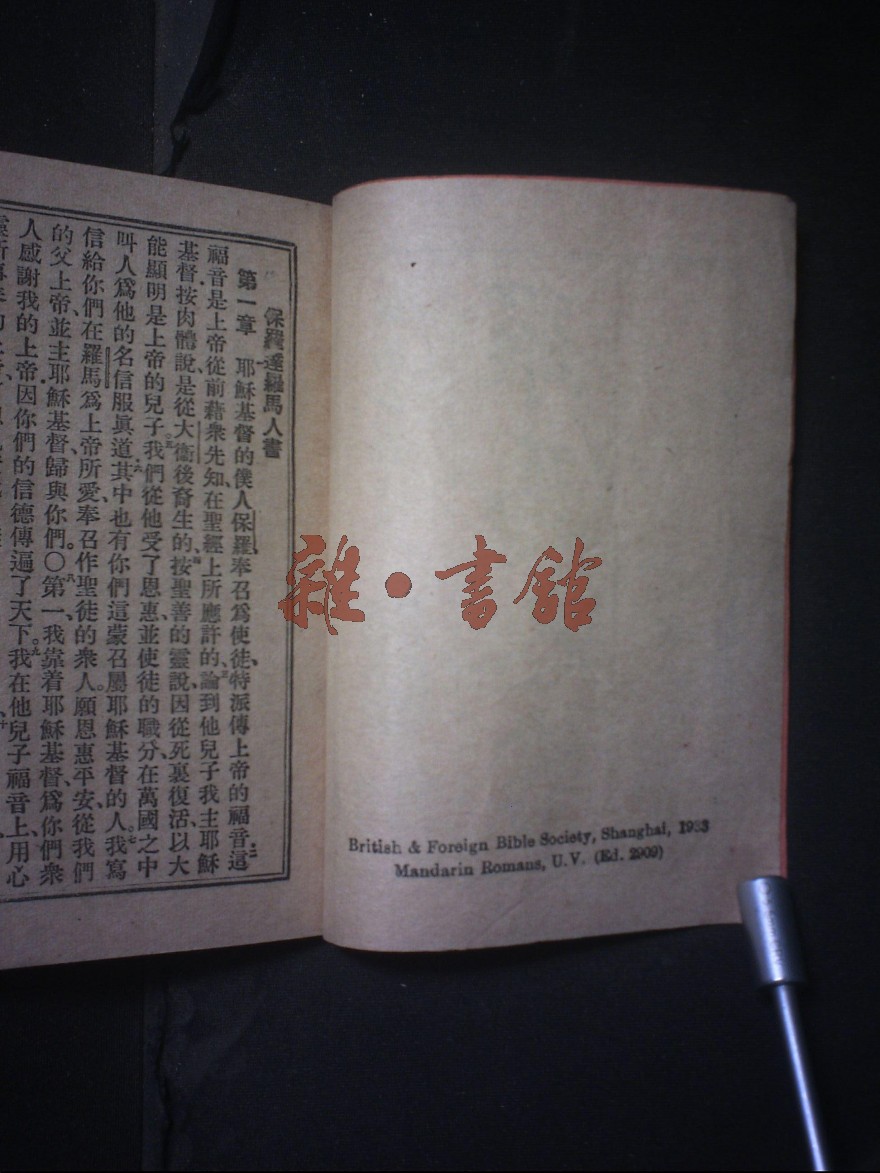 保羅達羅馬人書
第一章 耶穌基督的僕人保羅、奉召爲使徒、特派傳上帝的福音。二這
福音是上帝從前藉衆先知、在聖經上所應許的、三論到他兒子我主耶穌
基督按肉體說、是從大衛後裔生的、四按聖善的靈說、因從死裏復活、以大
能顯明是上帝的兒子。五我們從他受了恩惠、並使徒的職分、在萬國之中
叫人爲他的名信服眞道、六其中也有你們這蒙召屬耶穌基督的人。七我寫
信給你們在羅馬爲上帝所愛、奉召作聖徒的衆人。願恩惠平安、從我們
的父上帝、並主耶穌基督、歸與你們。〇八第一、我靠着耶穌基督、爲你們衆
人感謝我的上帝、因你們的信德傳遍了天下。九我在他兒子福音上、用心
British & Foreign Bible Society, Shanghai, 1933
Mandarin Romans, U.V. (Ed. 2909)
雜·書館